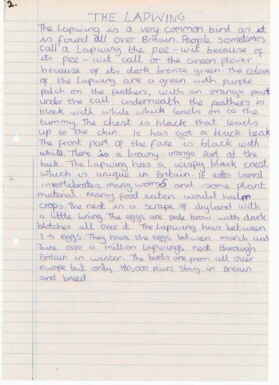 2.
THE LAPWING
The Lapwing is a very common bird an it
is found all over Britain. People sometimes
call a Lapwing the pee-wit because of
its pee-wit call or the green plover,
because of its dark bronze green. The colour
of the Lapwing are a green with purple
patch on the feathers, with an orange
under the tail underneath the feathers is
black with white which leads on to the
tummy. The chest is black that leads
up to the chin. It has got a black beak
The front part of the face is black with
white. There is a browny orange at the
back. The Lapwing has a scrapy black crest
which is unique in Britain. It eats
invertebrates, many worms and some plant
material. Many food eaten would harm
crops. The nest is a scrape of dry land with
a little lining. The eggs are pale brown with dark
blotches all over it. The Lapwing has between
3-4 eggs. They have the eggs between march and
June over a million Lapwings nest through
Britain in winter. The birds are from all over
europe but only pairs stay in Britain
and breed.